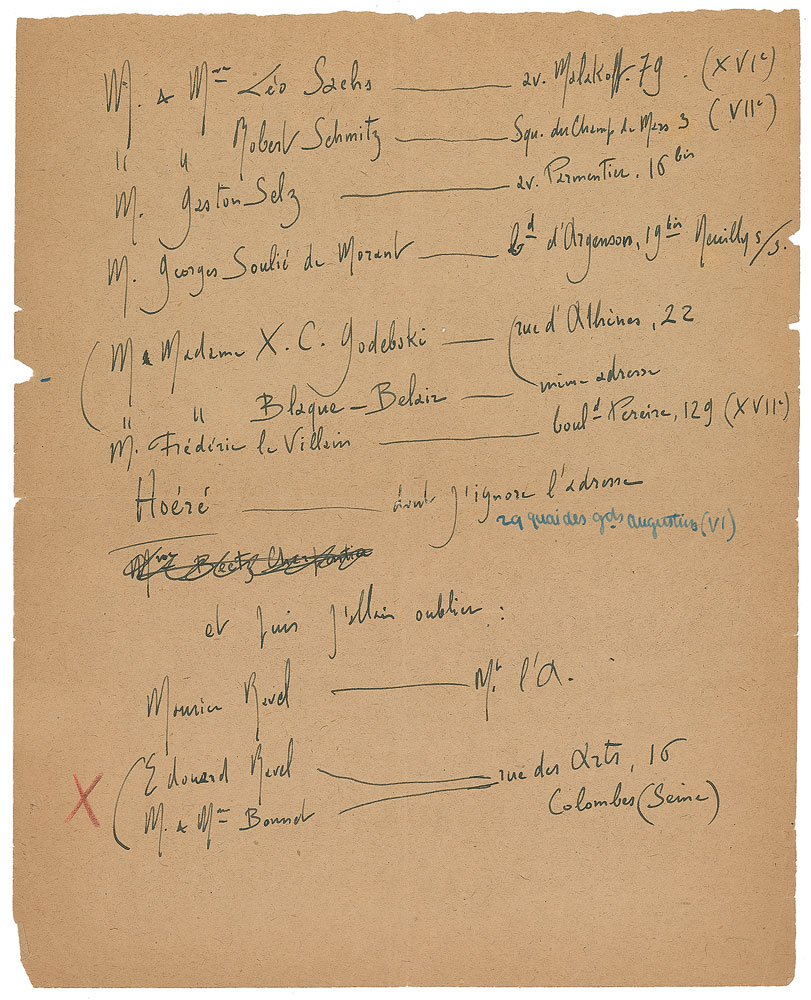 M. & Mme Léo Sachs — av. Malakoff. 79. (XVIe)
" " Robert Schmitz — Squ. du Champ de Mars 3 (VIIe)
M. Gaston Selz — av. Parmentier, 16 bis
M. Georges Soulié de Morant — bd d'Argenson, 19 bis Neuilly s/S.
M & Madame X. C. Godebski — rue d'Athènes, 22
" " Blaque-Belair — même adresse
M. Frédéric le Villain — bould Pereire, 129 (XVIIe)
Hoéré — dont j'ignore l'adresse
29 quai des gds augustins (VI)
et puis j'allais oublier :
Maurice Ravel — Mt l'A.
Edouard Ravel — rue des Arts, 16
M. & Mme Bonnet Colombes (Seine)
X